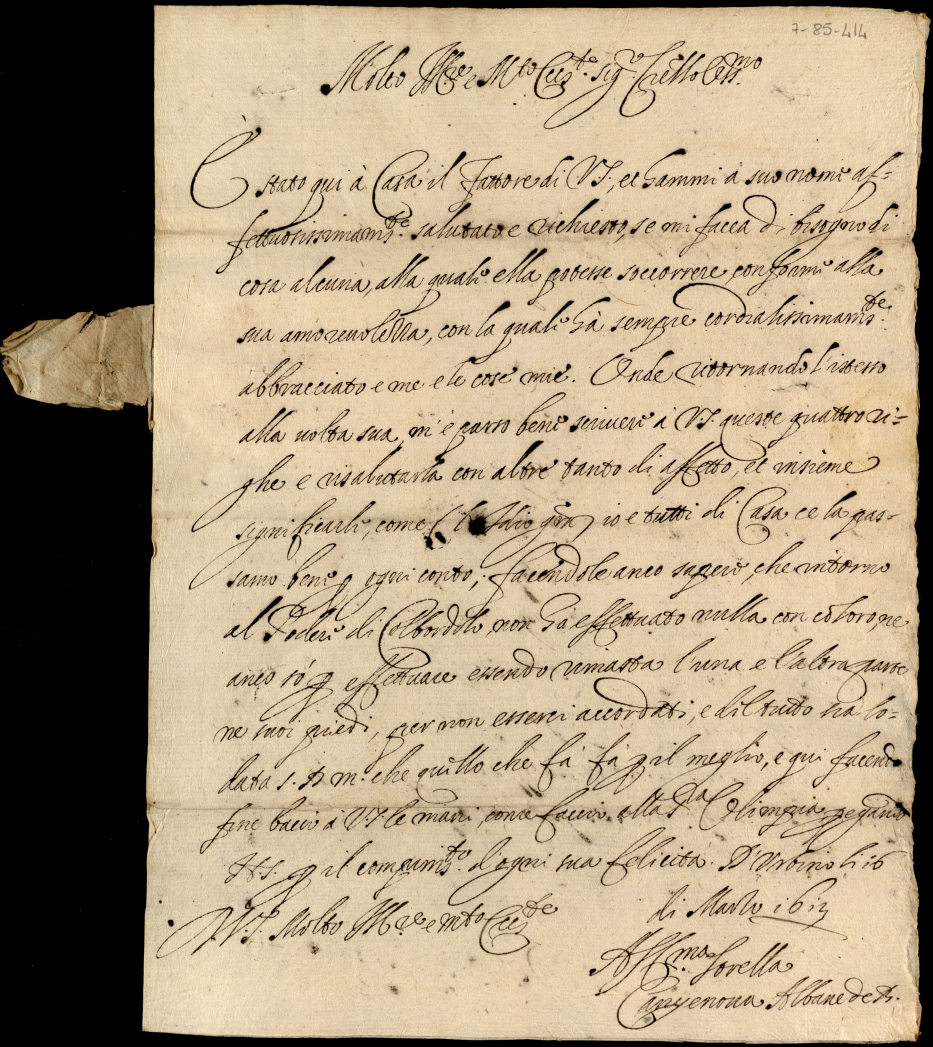 7-85-414
Molto Ill.re e M.to Ecc.te sig.r
È stato qui à Casa il Fattore di V.S., et hammi à suo nome af=
fettuosissimam.te salutato e richiesto, se mi facea di bisogno di
cosa alcuna, alla quale ella potesse soccorrere conforme alla
sua amorevolezza, con la quale hà sempre cordialissimam.te
abbracciato e me e le cose mie. Onde ritornando l'istesso
alla volta sua, m'è parso bene scrivere à V.S. queste quattro ri=
ghe e risalutarla con altre tanto di affetto, et insieme
significarle, come Idio gra) io e tutti di Casa ce la pas=
samo bene p ogni conto, facendole anco sapere, che intorno
al Podere di Colbordolo, non hà effettuato nulla con coloro, ne
anco è p effettuare essendo rimasta l'una e l'altra parte
ne suoi piedi, per non esserci accordati, e del tutto sia lo=
data s. D. M. che quello che fà fà p il meglio, e qui facendo
fine bacio à V.S. le mani, come faccio alla S.ra Olimpia pregando
N.S. p il compim.to d'ogni sua felicità. D'Urbino li 16
di Marzo
D. V.S. Molto Ill.re e m.to Ecc.te
Aff.ma Sorella
Albane de